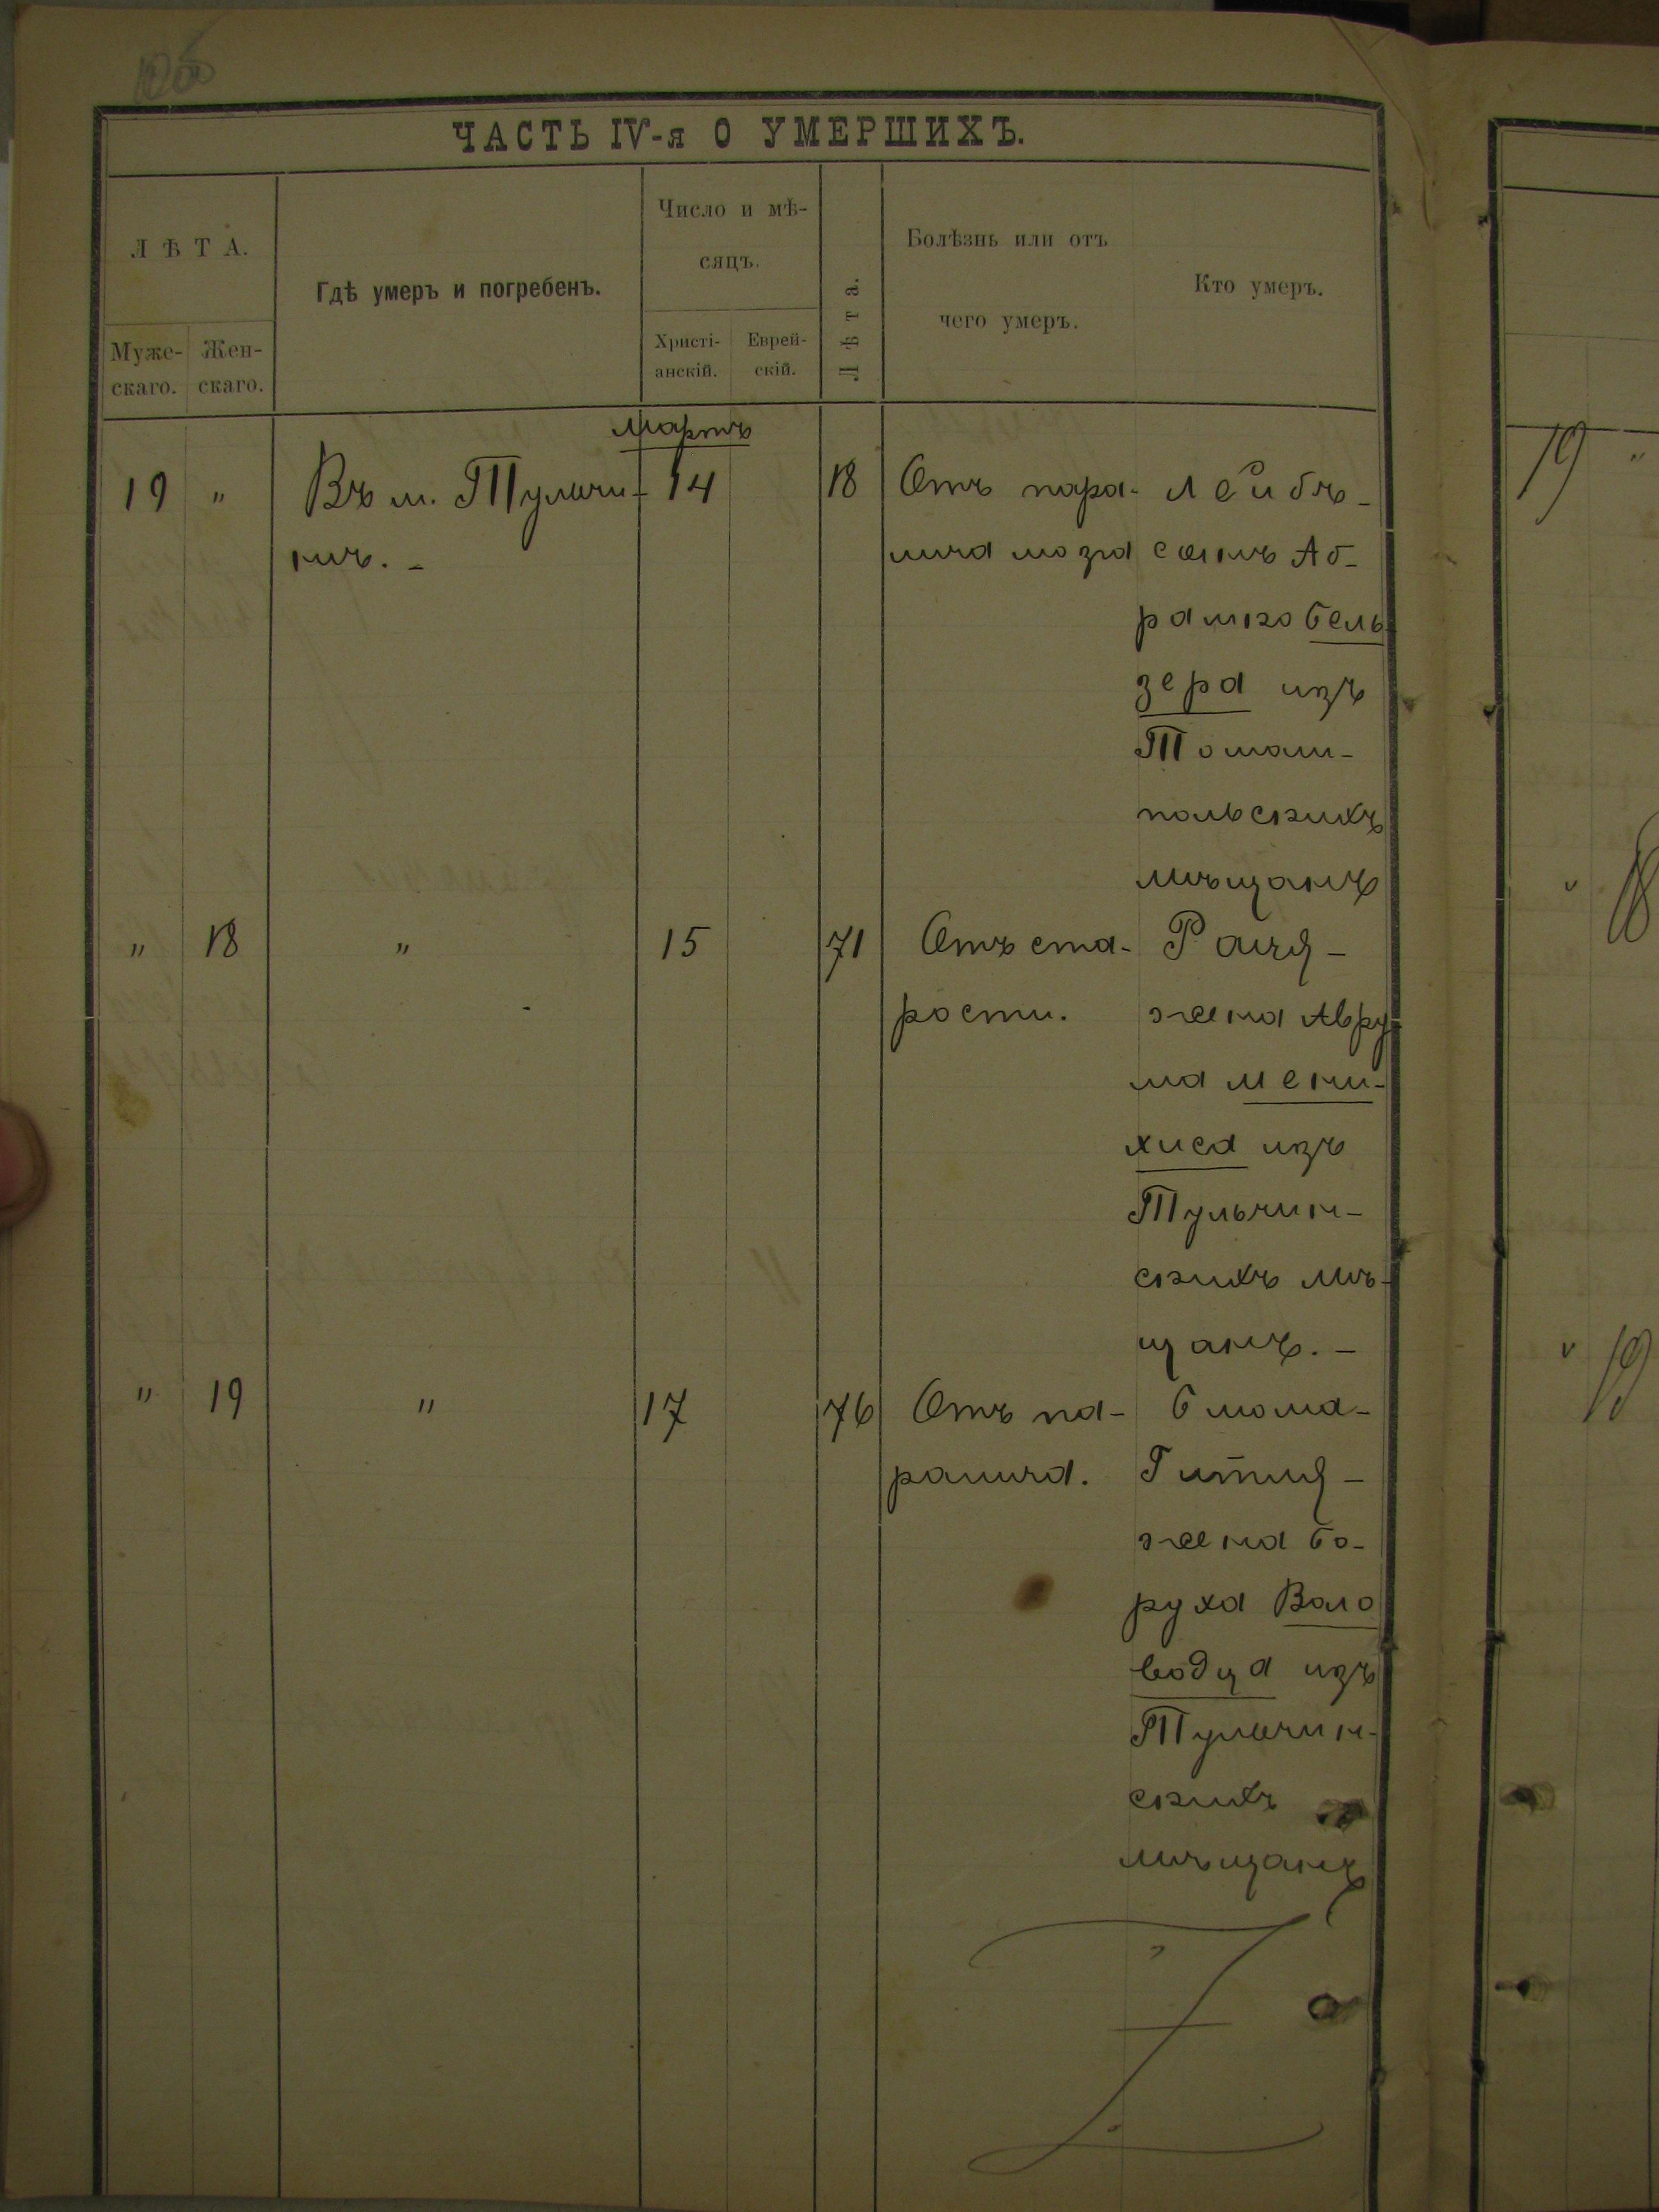 ЧАСТЬ IV-я О УМЕРШИХЪ.
ЛѢТА.
Муже-
скаго.
Жен-
скаго.
Гдѣ умеръ и погребенъ.
Число и мѣ-
сяцъ.
Христі-
анскій.
Еврей-
скій.
Лѣта.
Болѣзнь или отъ
чего умеръ.
Кто умеръ.
Мартъ
19 " Въ м. Тульчи- 14 18 Отъ пара- Лейбъ-
нѣ. - лича мозга сынъ Аб-
рамко Бель
зера изъ
Томаш-
польскихъ
мѣщанъ
" 18 " 15 71 Отъ ста- Рахля-
рости. жена Авру-
ма Мени-
хиса изъ
Тульчин-
скихъ мѣ-
щанъ. -
" 19 " 17 76 Отъ па- Блюма-
ралича. Гитля-
жена Бо-
руха Воло
водца изъ
Тульчин-
скихъ
мѣщанъ
19 "
" 18
" 19